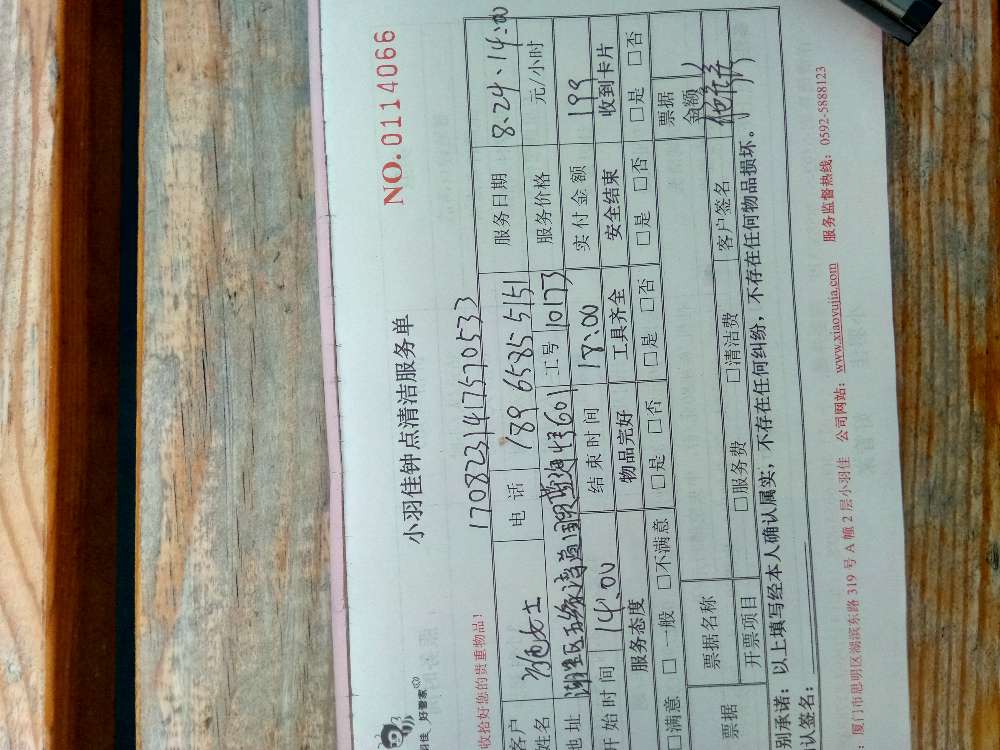 好管家
小羽佳钟点清洁服务单
NO. 0114066
收拾好您的贵重物品！
170823147570533
客户姓名 施女士 电话 189 6585 5151 服务日期 8.24.14:00
地址 湖里区五缘湾 601 工号 10173 服务价格 元/小时
开始时间 14:00 结束时间 18:00 实付金额 199
服务态度 物品完好 工具齐全 安全结束 收到卡片
□满意 □一般 □不满意 □是 □否 □是 □否 □是 □否 □是 □否
票据 票据名称 票据金额
开票项目 □服务费 □清洁费 客户签名
别承诺：以上填写经本人确认属实，不存在任何纠纷，不存在任何物品损坏。
认签名：
：厦门市思明区湖滨东路 319 号 A 幢 2 层小羽佳 公司网站：www.xiaoyujia.com 服务监督热线：0592-5888123